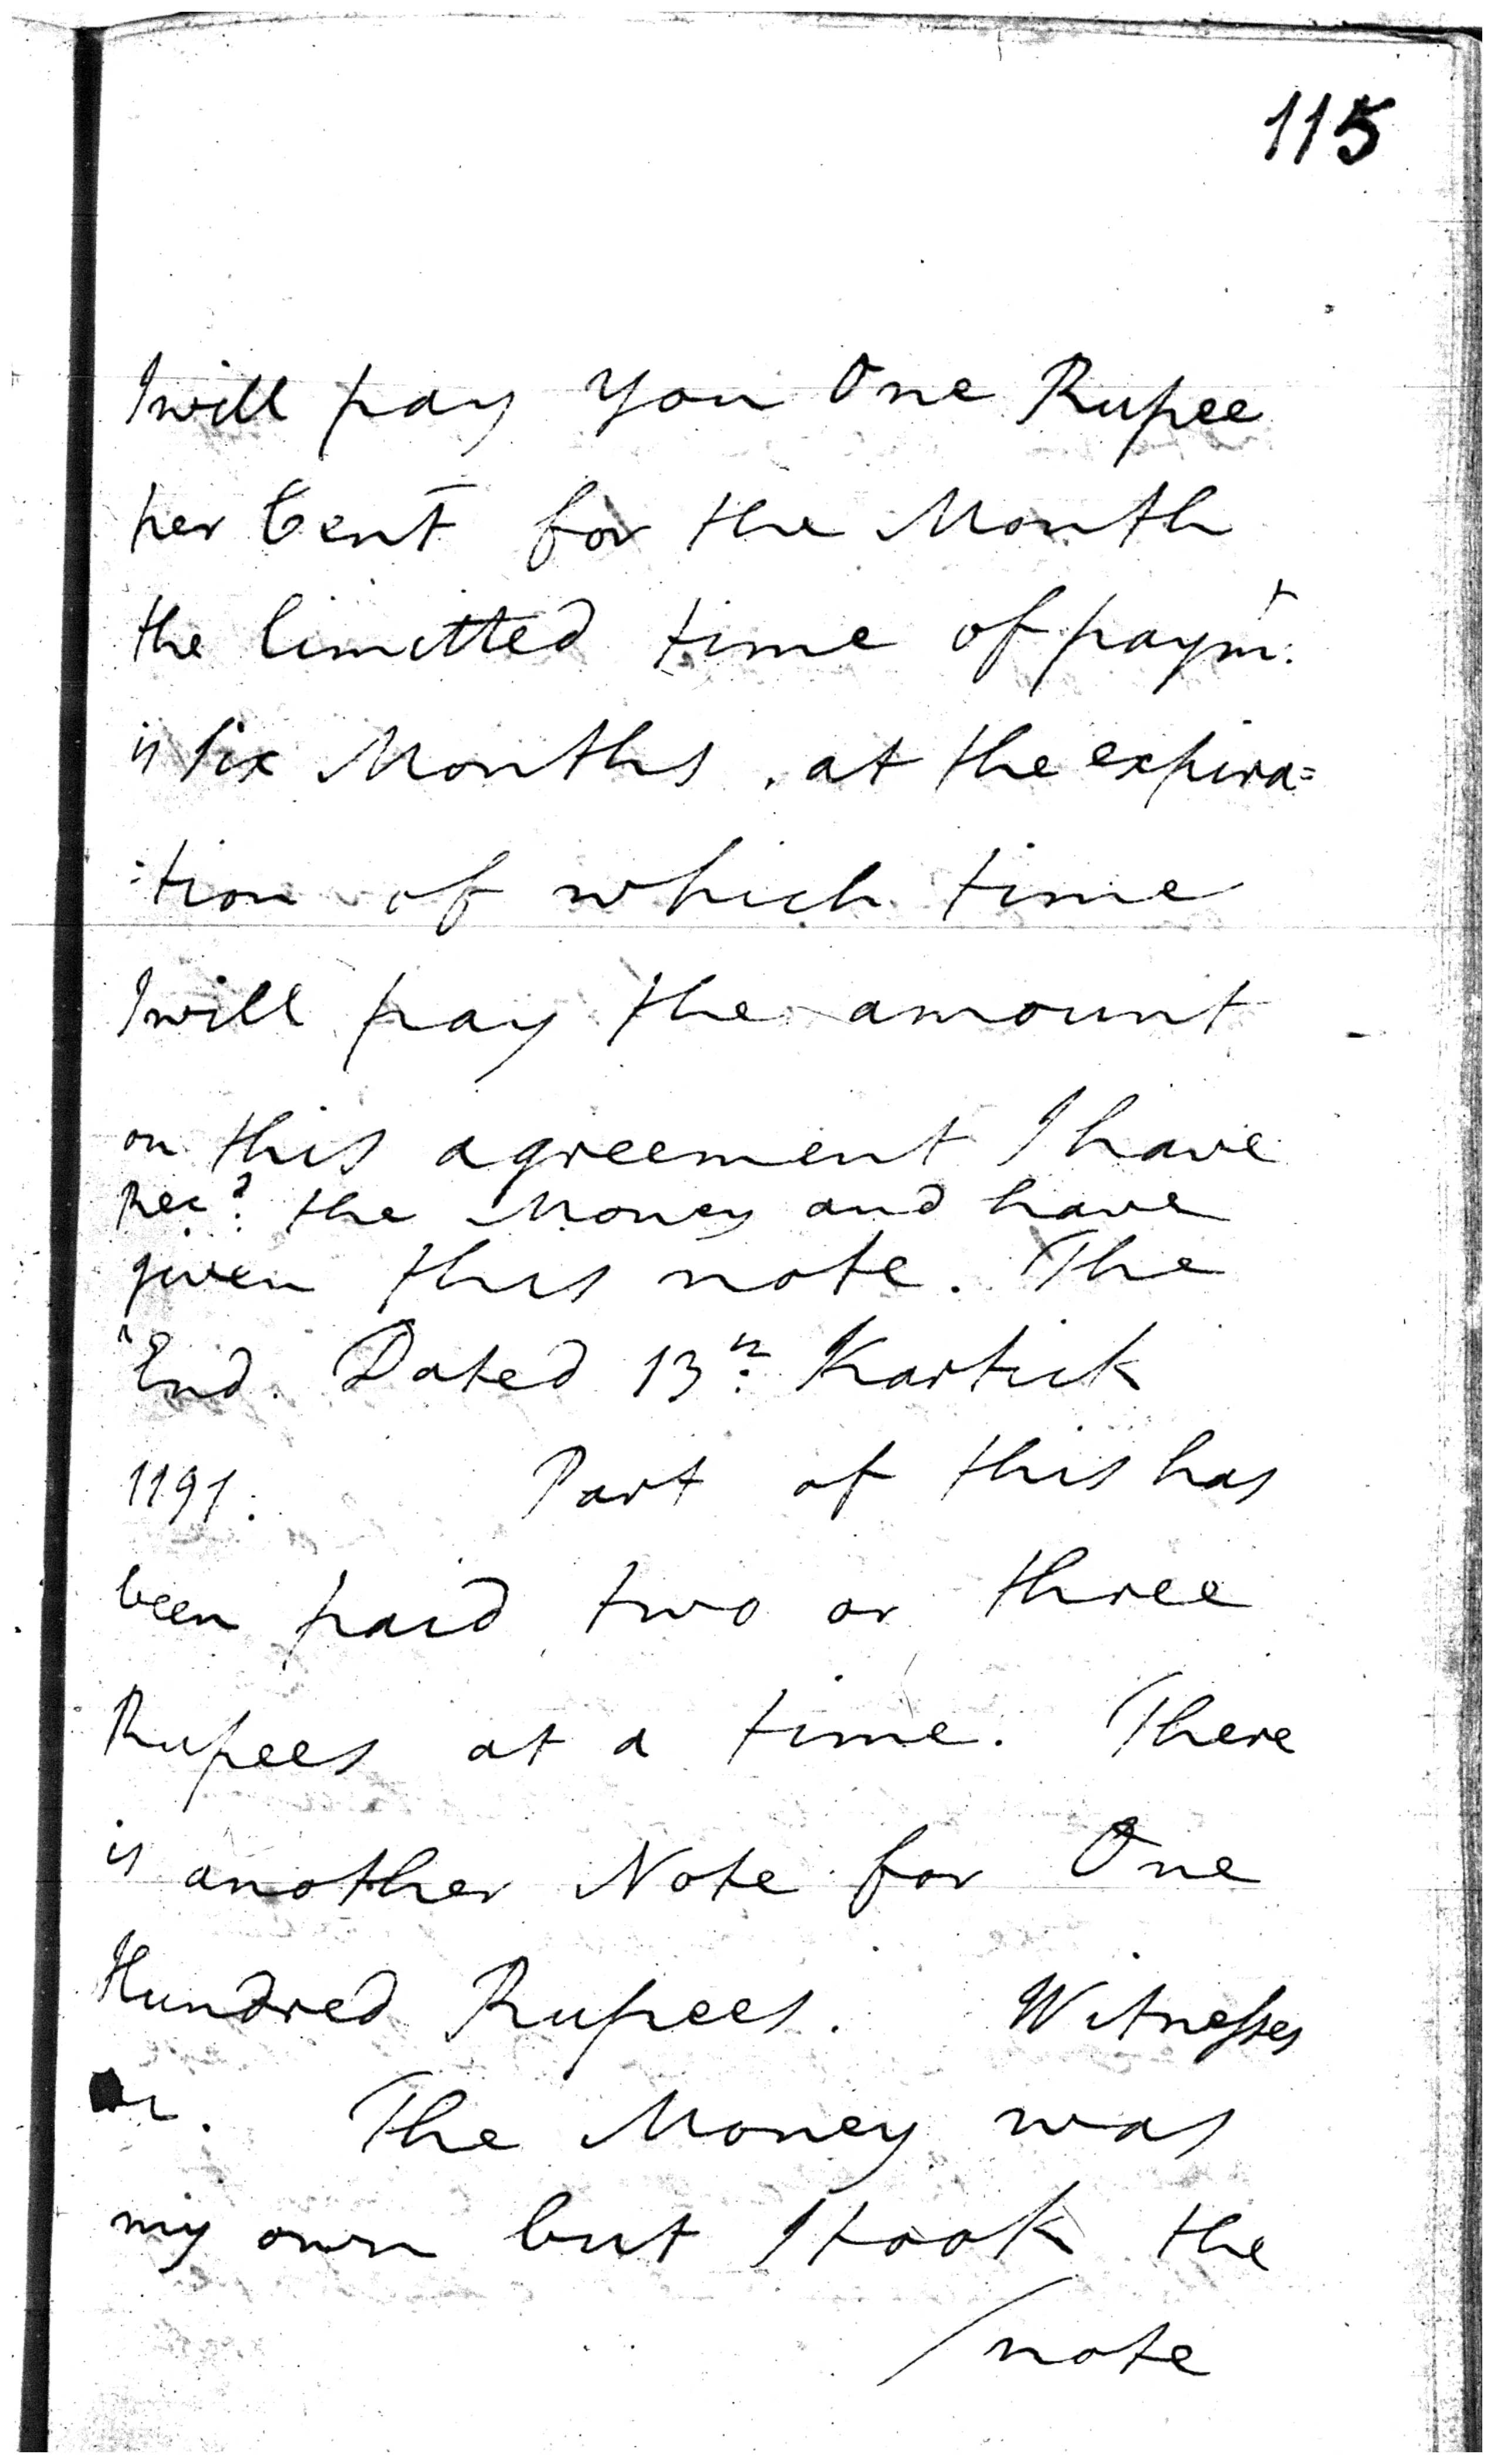 115
I will pay you One Rupee
per Cent for the Month
the limitted time of paymt.
is Six Months, at the expira=
:tion of which time
I will pay the amount
on this agreement I have
Recd. the Money and have
given this note. The
End. Dated 13n: Kartick
1191. Part of this has
been paid two or three
Rupees at a time. There
is another Note for One
Hundred Rupees. Witnesses
The Money was
my own but I took the
/note